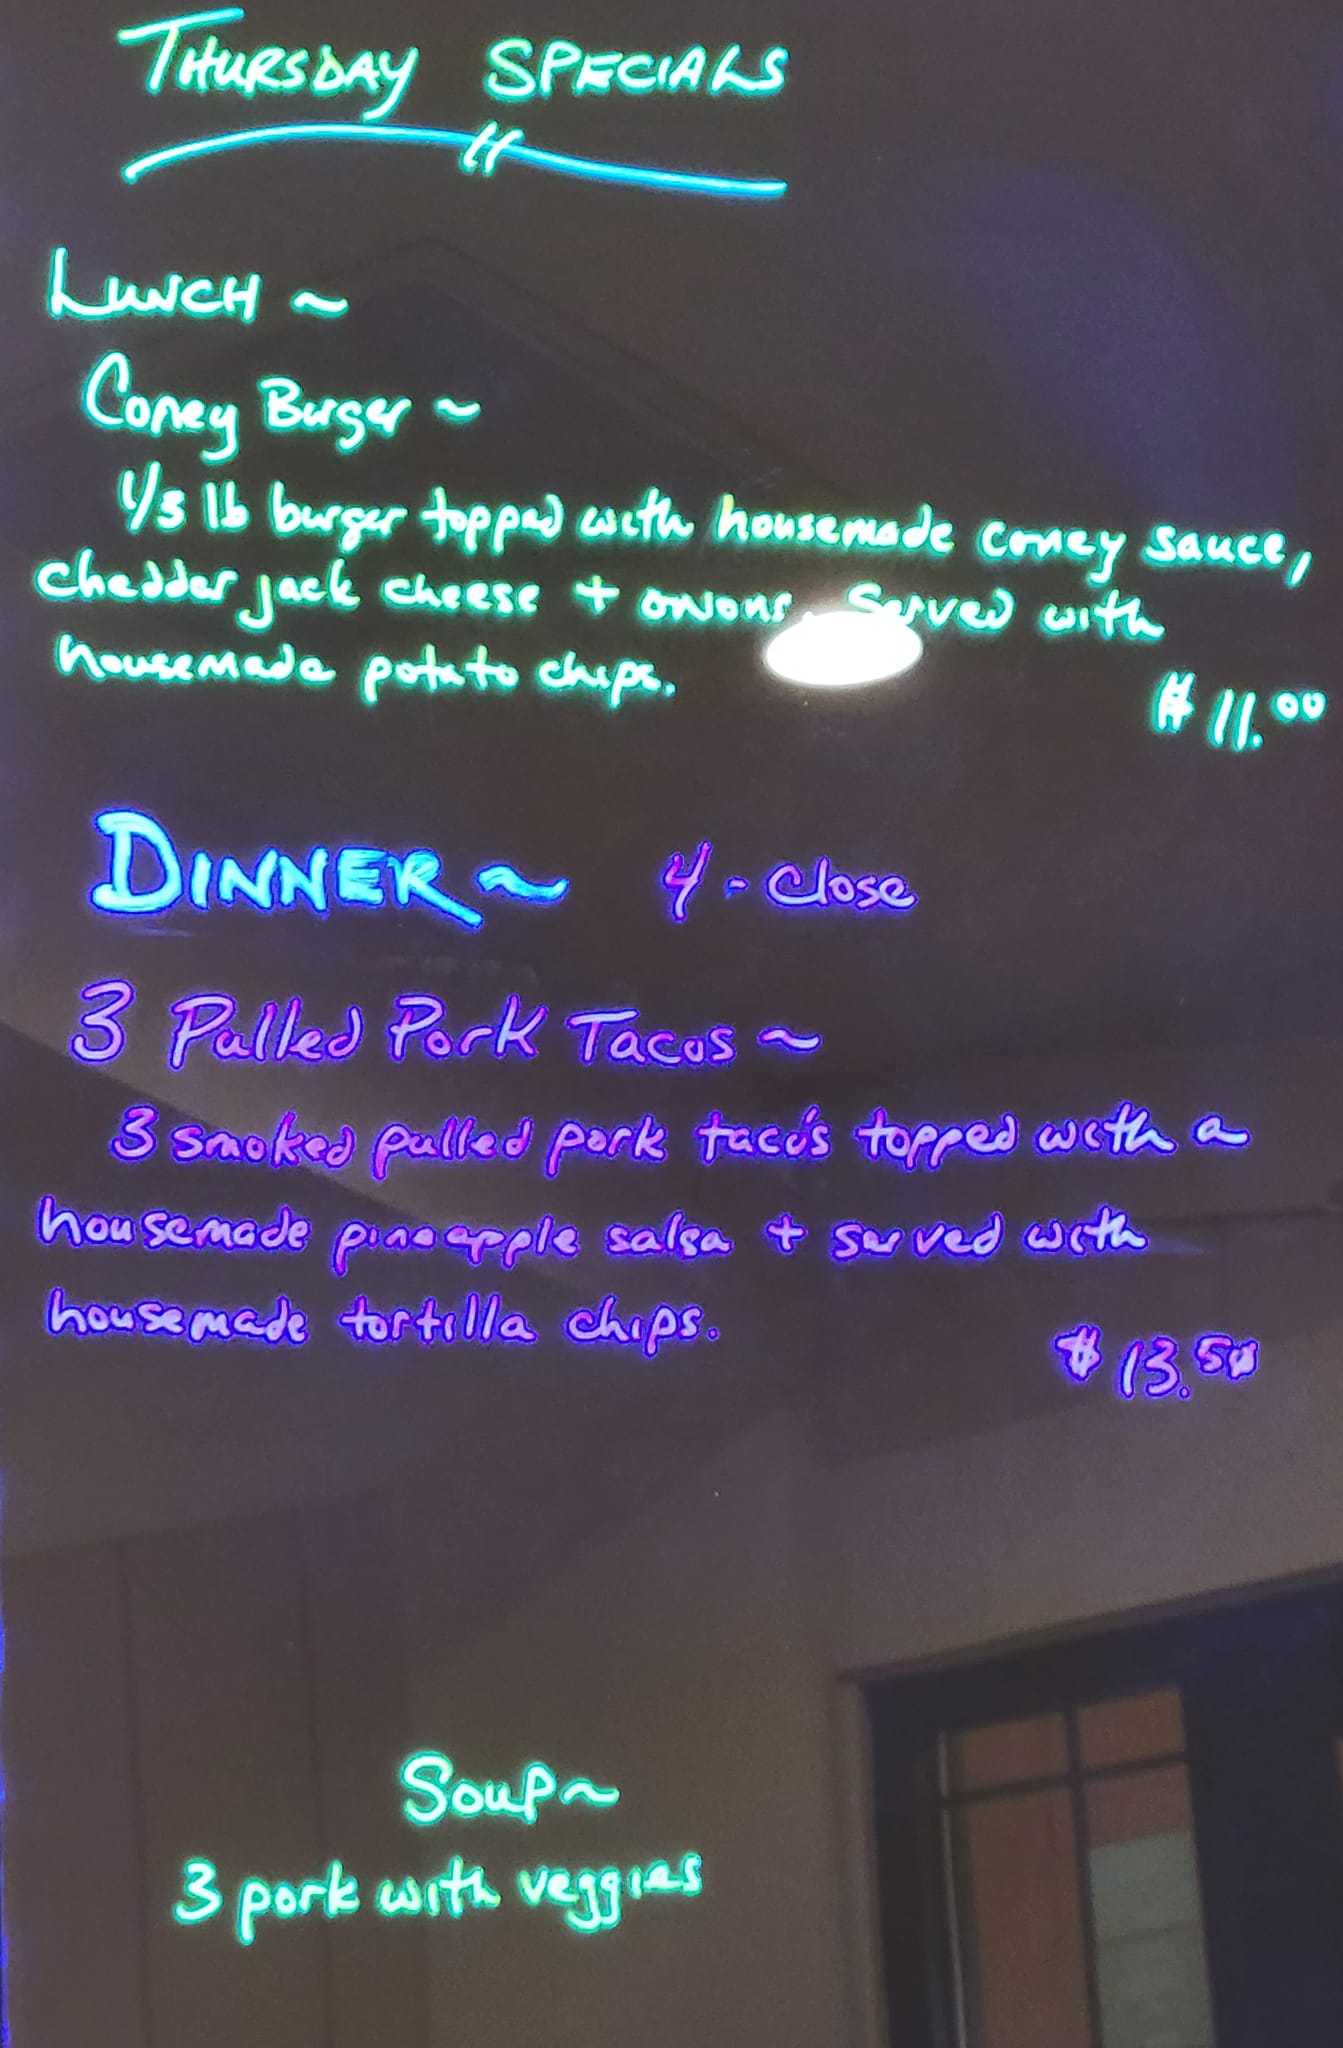 THURSDAY SPECIALS
LUNCH ~
Coney Burger ~
1/3 lb burger topped with housemade coney sauce,
chedder jack cheese + onions. Served with
housemade potato chips.
$11.00
DINNER ~ 4 - Close
3 Pulled Pork Tacos ~
3 smoked pulled pork taco's topped with a
housemade pineapple salsa + served with
housemade tortilla chips.
$13.50
Soup ~
3 pork with veggies